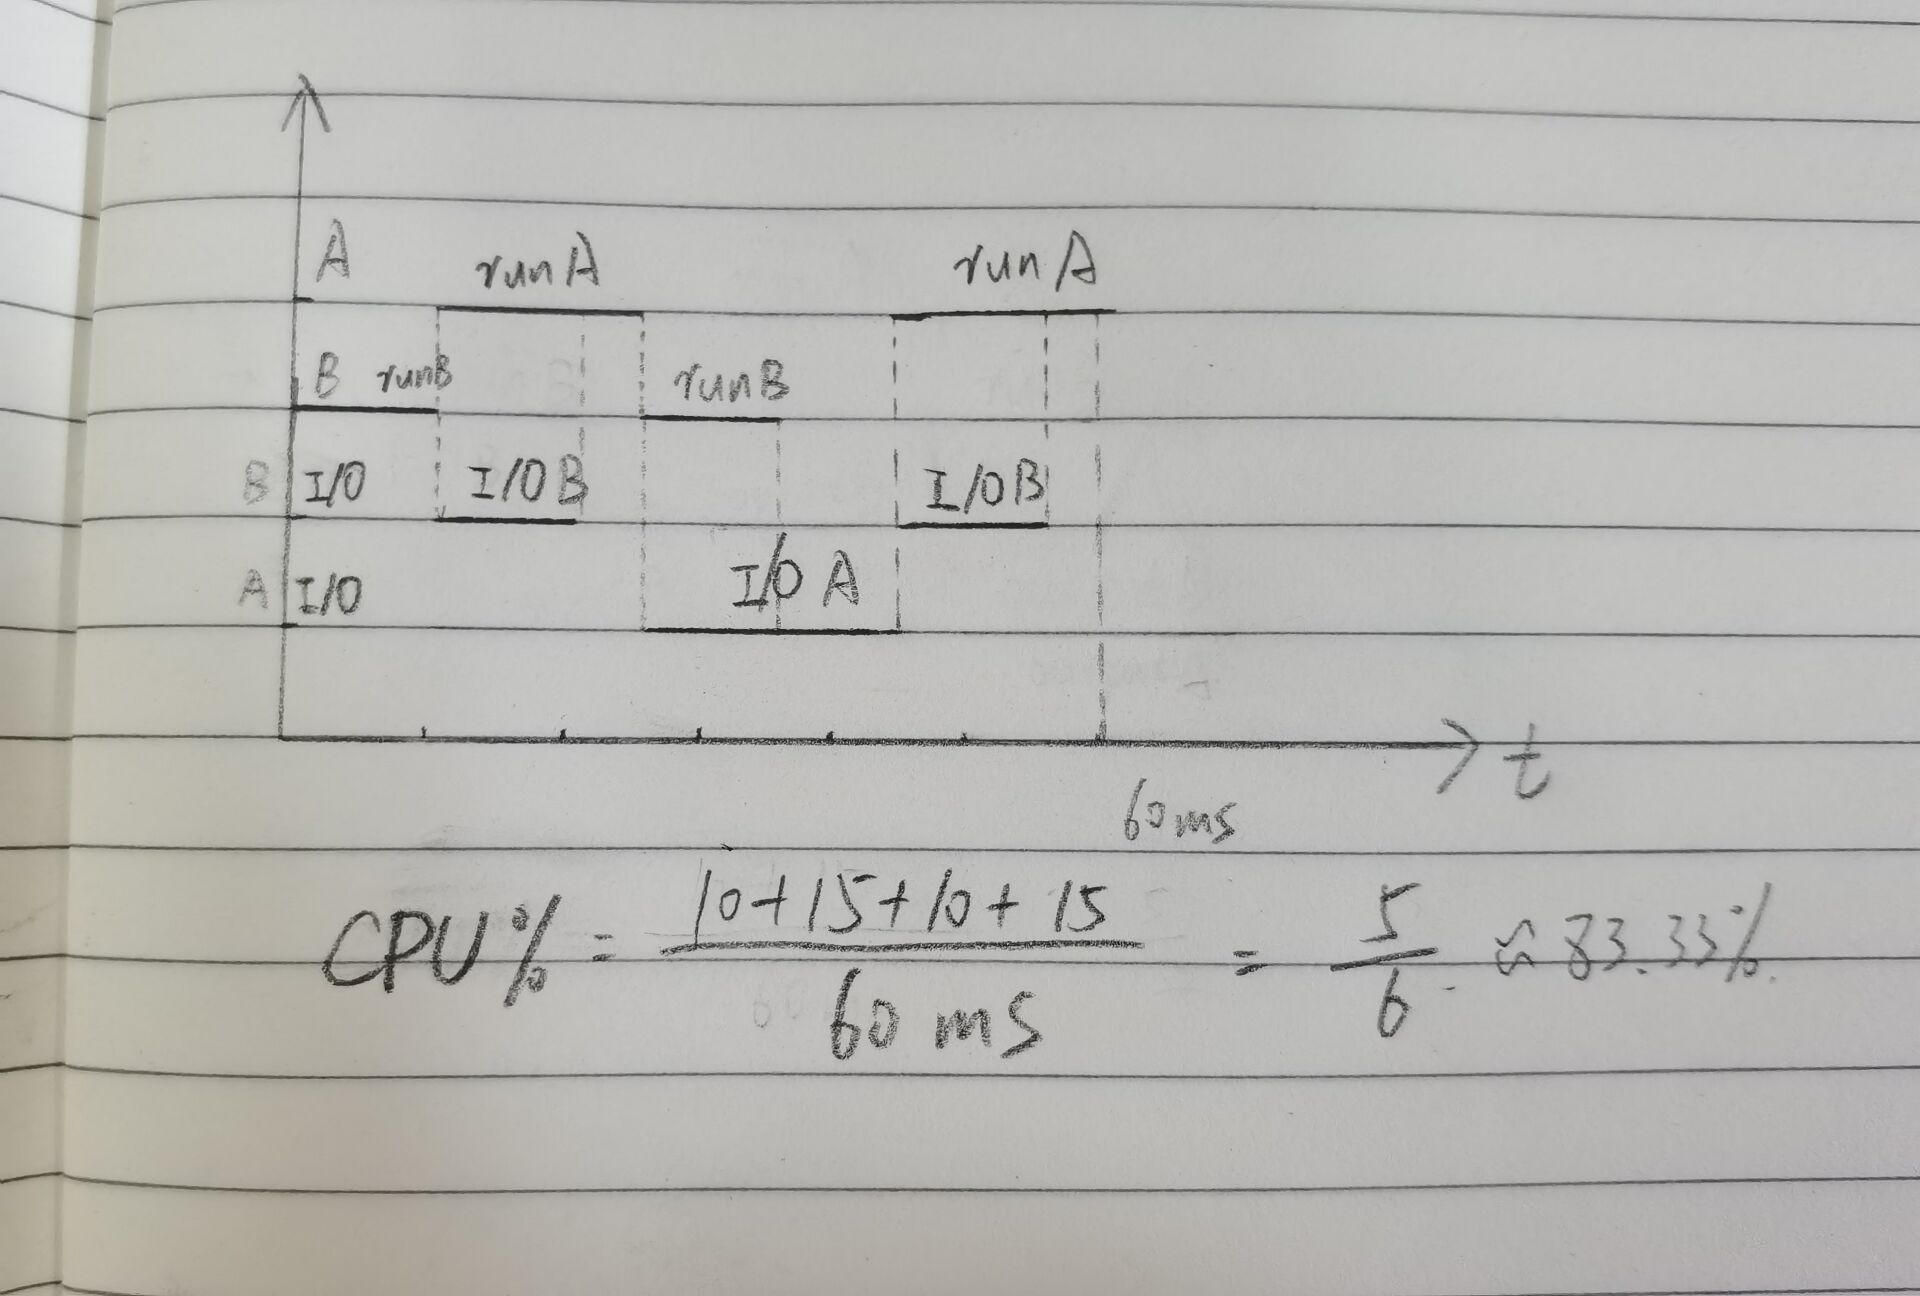 A runA runA
B runB runB
B I/O I/OB I/OB
A I/O I/O A
t
60ms
CPU% = 10+15+10+15 / 60 ms = 5/6 ≈ 83.33%.